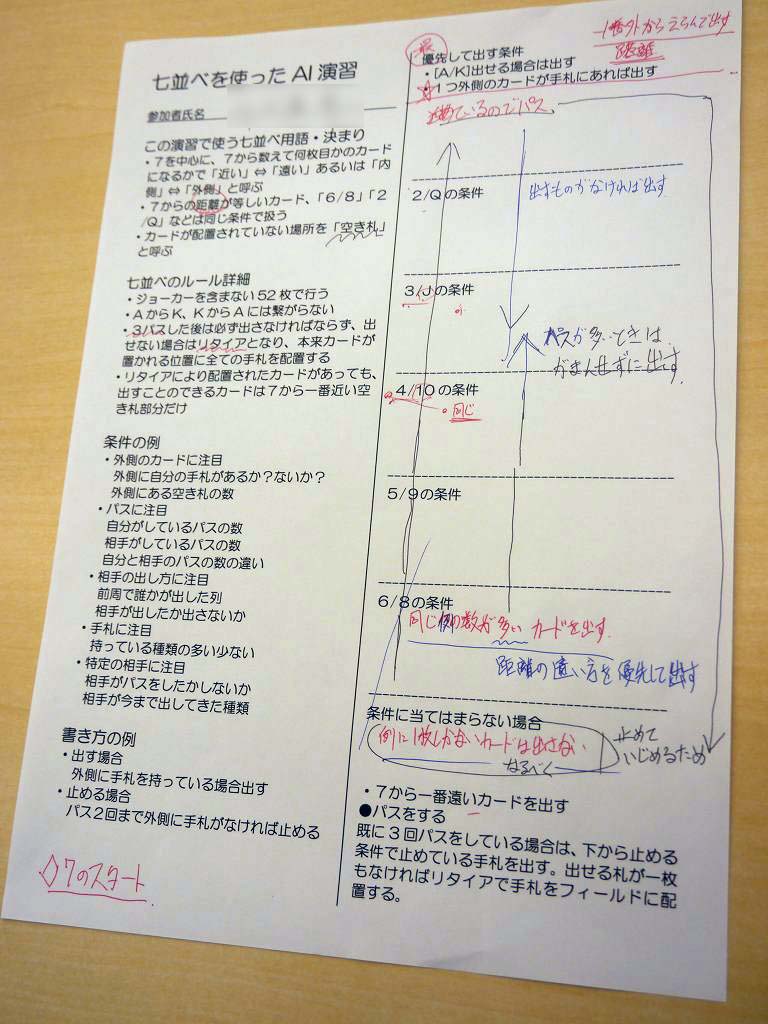 七並べを使ったAI演習
参加者氏名
この演習で使う七並べ用語・決まり
・7を中心に、7から数えて何枚目かのカード
になるかで「近い」⇔「遠い」あるいは「内
側」⇔「外側」と呼ぶ
・7からの距離が等しいカード、「6/8」「2
/Q」などは同じ条件で扱う
・カードが配置されていない場所を「空き札」
と呼ぶ
七並べのルール詳細
・ジョーカーを含まない52枚で行う
・AからK、KからAには繋がらない
・3パスした後は必ず出さなければならず、出
せない場合はリタイアとなり、本来カードが
置かれる位置に全ての手札を配置する
・リタイアにより配置されたカードがあっても、
出すことのできるカードは7から一番近い空
き札部分だけ
条件の例
・外側のカードに注目
外側に自分の手札があるか?ないか?
外側にある空き札の数
・パスに注目
自分がしているパスの数
相手がしているパスの数
自分と相手のパスの数の違い
・相手の出し方に注目
前周で誰かが出した列
相手が出したか出さないか
・手札に注目
持っている種類の多い少ない
・特定の相手に注目
相手がパスをしたかしないか
相手が今まで出してきた種類
書き方の例
・出す場合
外側に手札を持っている場合出す
・止める場合
パス2回まで外側に手札がなければ止める
◇7のスタート
一番外からえらんで出す
距離
優先して出す条件
・[A/K]出せる場合は出す
・1つ外側のカードが手札にあれば出す
ているのでパス
2/Qの条件
出すものがなければ出す
3/Jの条件
パスが多いときは
がまんせずに出す
4/10の条件
・同じ
5/9の条件
6/8の条件
同じ側の数が多いカードを出す
距離の遠い方を優先して出す
条件に当てはまらない場合
側に1枚しかないカードは出さない
なるべく
止めて
いじめるため
・7から一番遠いカードを出す
●パスをする
既に3回パスをしている場合は、下から止める
条件で止めている手札を出す。出せる札が一枚
もなければリタイアで手札をフィールドに配
置する。